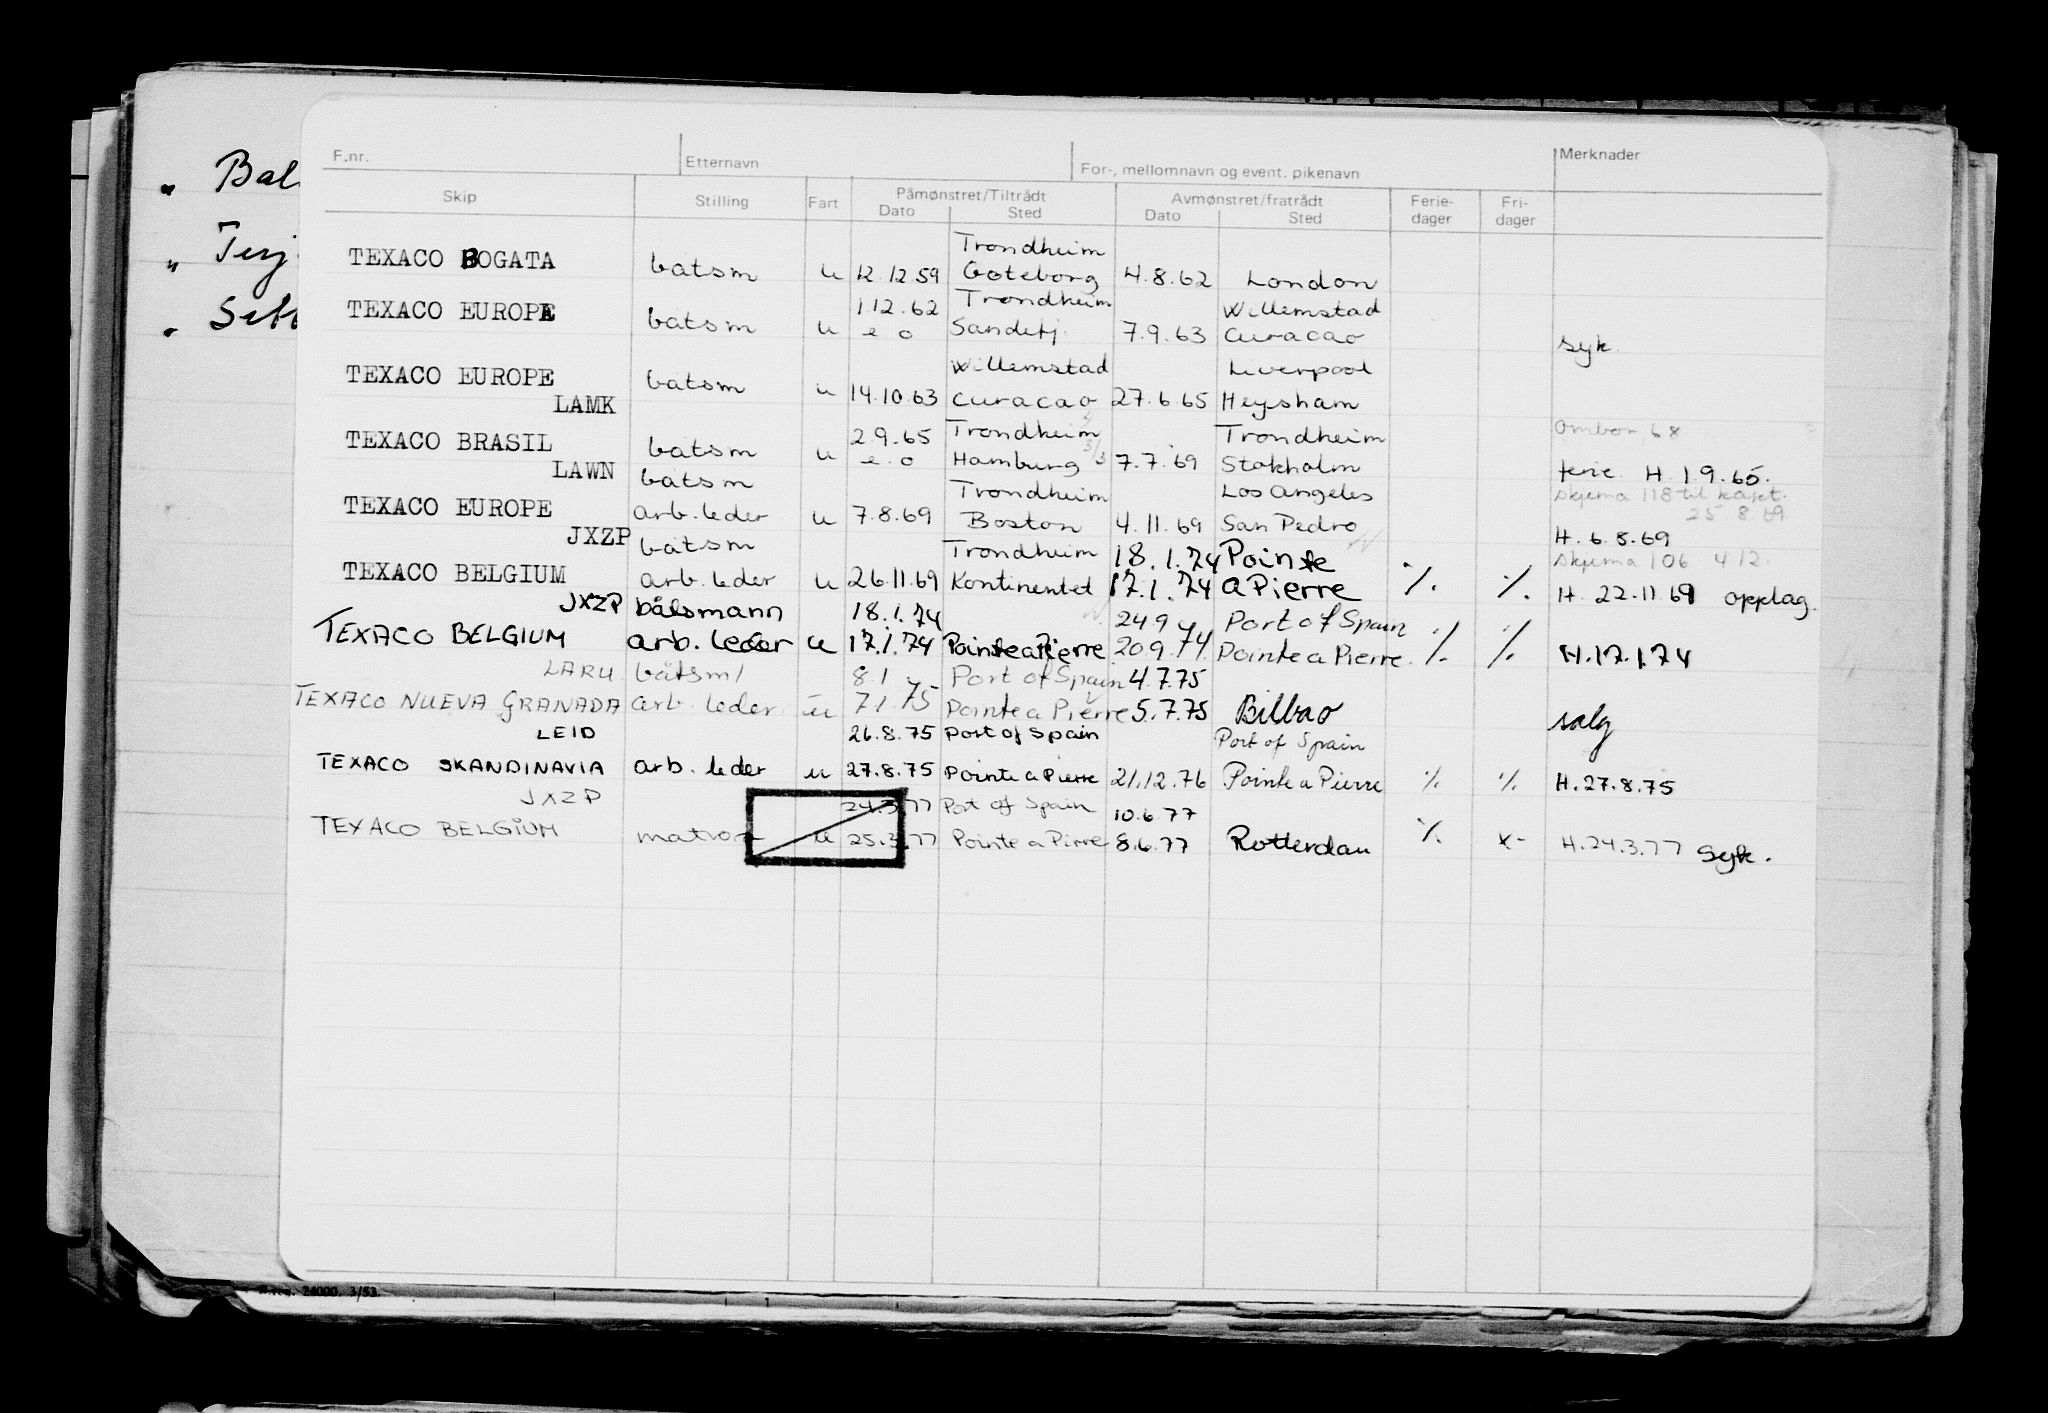 F.nr. Etternavn For-, mellomnavn og event. pikenavn Merknader
Skip Stilling Fart Påmønstret/Tiltrådt Avmønstret/fratrådt Ferie- Fri-
Dato Sted Dato Sted dager dager
" Bal
" Terj
" Sett
Trondheim
TEXACO BOGATA båtsm u 12.12.59 Göteborg 4.8.62 London
1.12.62 Trondheim Willemstad
TEXACO EUROPE båtsm u e o Sandefj. 7.9.63 Curacao syk.
Willemstad Liverpool
TEXACO EUROPE båtsm u 14.10.63 Curacao 27.6.65 Heysham
LAMK 2.9.65 Trondheim Trondheim Ombor. 68
TEXACO BRASIL båtsm u e.o Hamburg 3/3 7.7.69 Stokholm ferie H.1.9.65.
LAWN båtsm Trondheim Los Angeles skjema 118 til kapt. 25 8 69
TEXACO EUROPE arb.leder u 7.8.69 Boston 4.11.69 San Pedro H.6.8.69
JXZP båtsm Trondheim 18.1.74 Pointe skjema 106 4 12.
TEXACO BELGIUM arb.leder u 26.11.69 Kontinentet 17.1.74 a Pierre ./. ./. H.22.11.69 opplag.
JXZP båtsmann 18.1.74 24.9 Port of Spain
TEXACO BELGIUM arb. leder u 17.1.74 Pointe a Pierre 20.9.74 Pointe a Pierre ./. ./. H.17.1.74
LARU båtsm/ 8.1 Port of Spain 4.7.75
TEXACO NUEVA GRANADA arb. leder u 7.1.75 Pointe a Pierre 5.7.75 Bilbao salg
LEID 26.8.75 Port of Spain Port of Spain
TEXACO SKANDINAVIA arb. leder u 27.8.75 Pointe a Pierre 21.12.76 Pointe a Pierre ./. ./. H.27.8.75
JXZP 24.3.77 Port of Spain 10.6.77
TEXACO BELGIUM matros u 25.3.77 Pointe a Pierre 8.6.77 Rotterdam ./. x- H.24.3.77 Syk.
24000. 3/53.